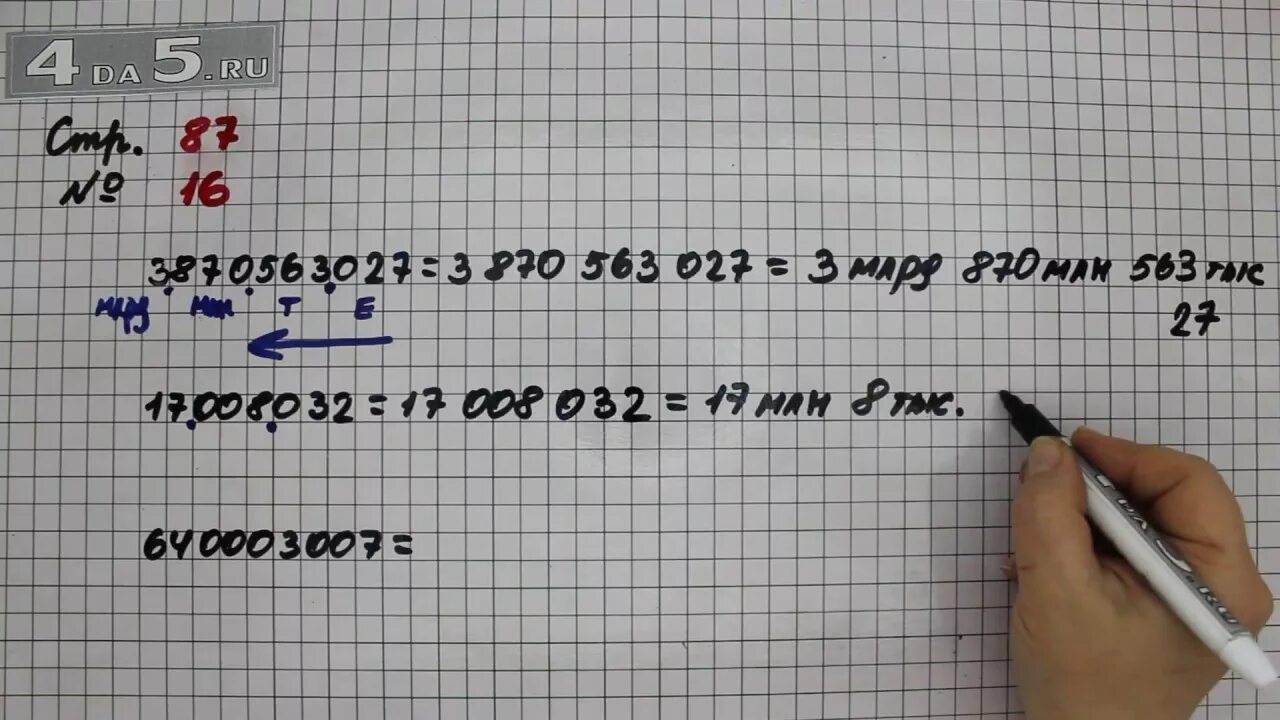 4DA5.RU
Стр. 87
№ 16
3870563027 = 3 870 563 027 = 3 млрд 870 млн 563 тыс
27
млрд млн Т Е
17008032 = 17 008 032 = 17 млн 8 тыс.
640003007 =